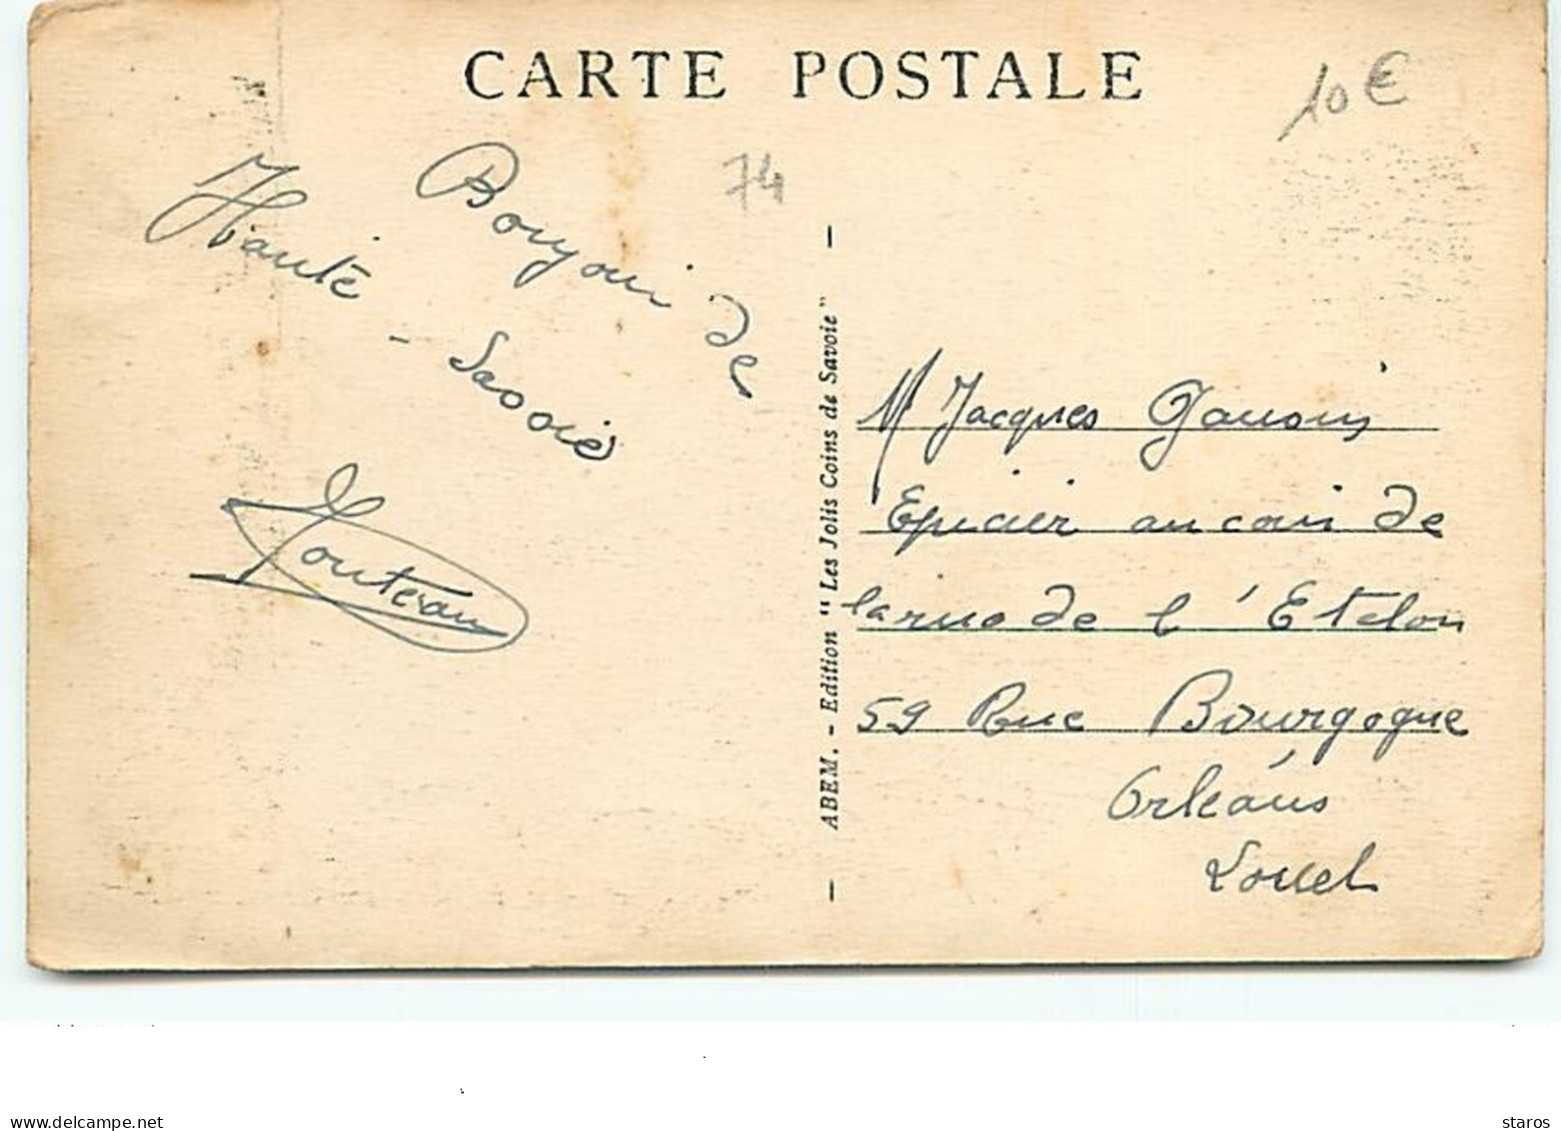 CARTE POSTALE
10 €
74
Bonjour de
Haute - Savoie
M Jacques
Epicier au coin de
la rue de l'Etelon
59 Rue Bourgogne
Orléans
Loiret
ABEM. - Edition "Les Jolis Coins de Savoie"
www.delcampe.net
staros